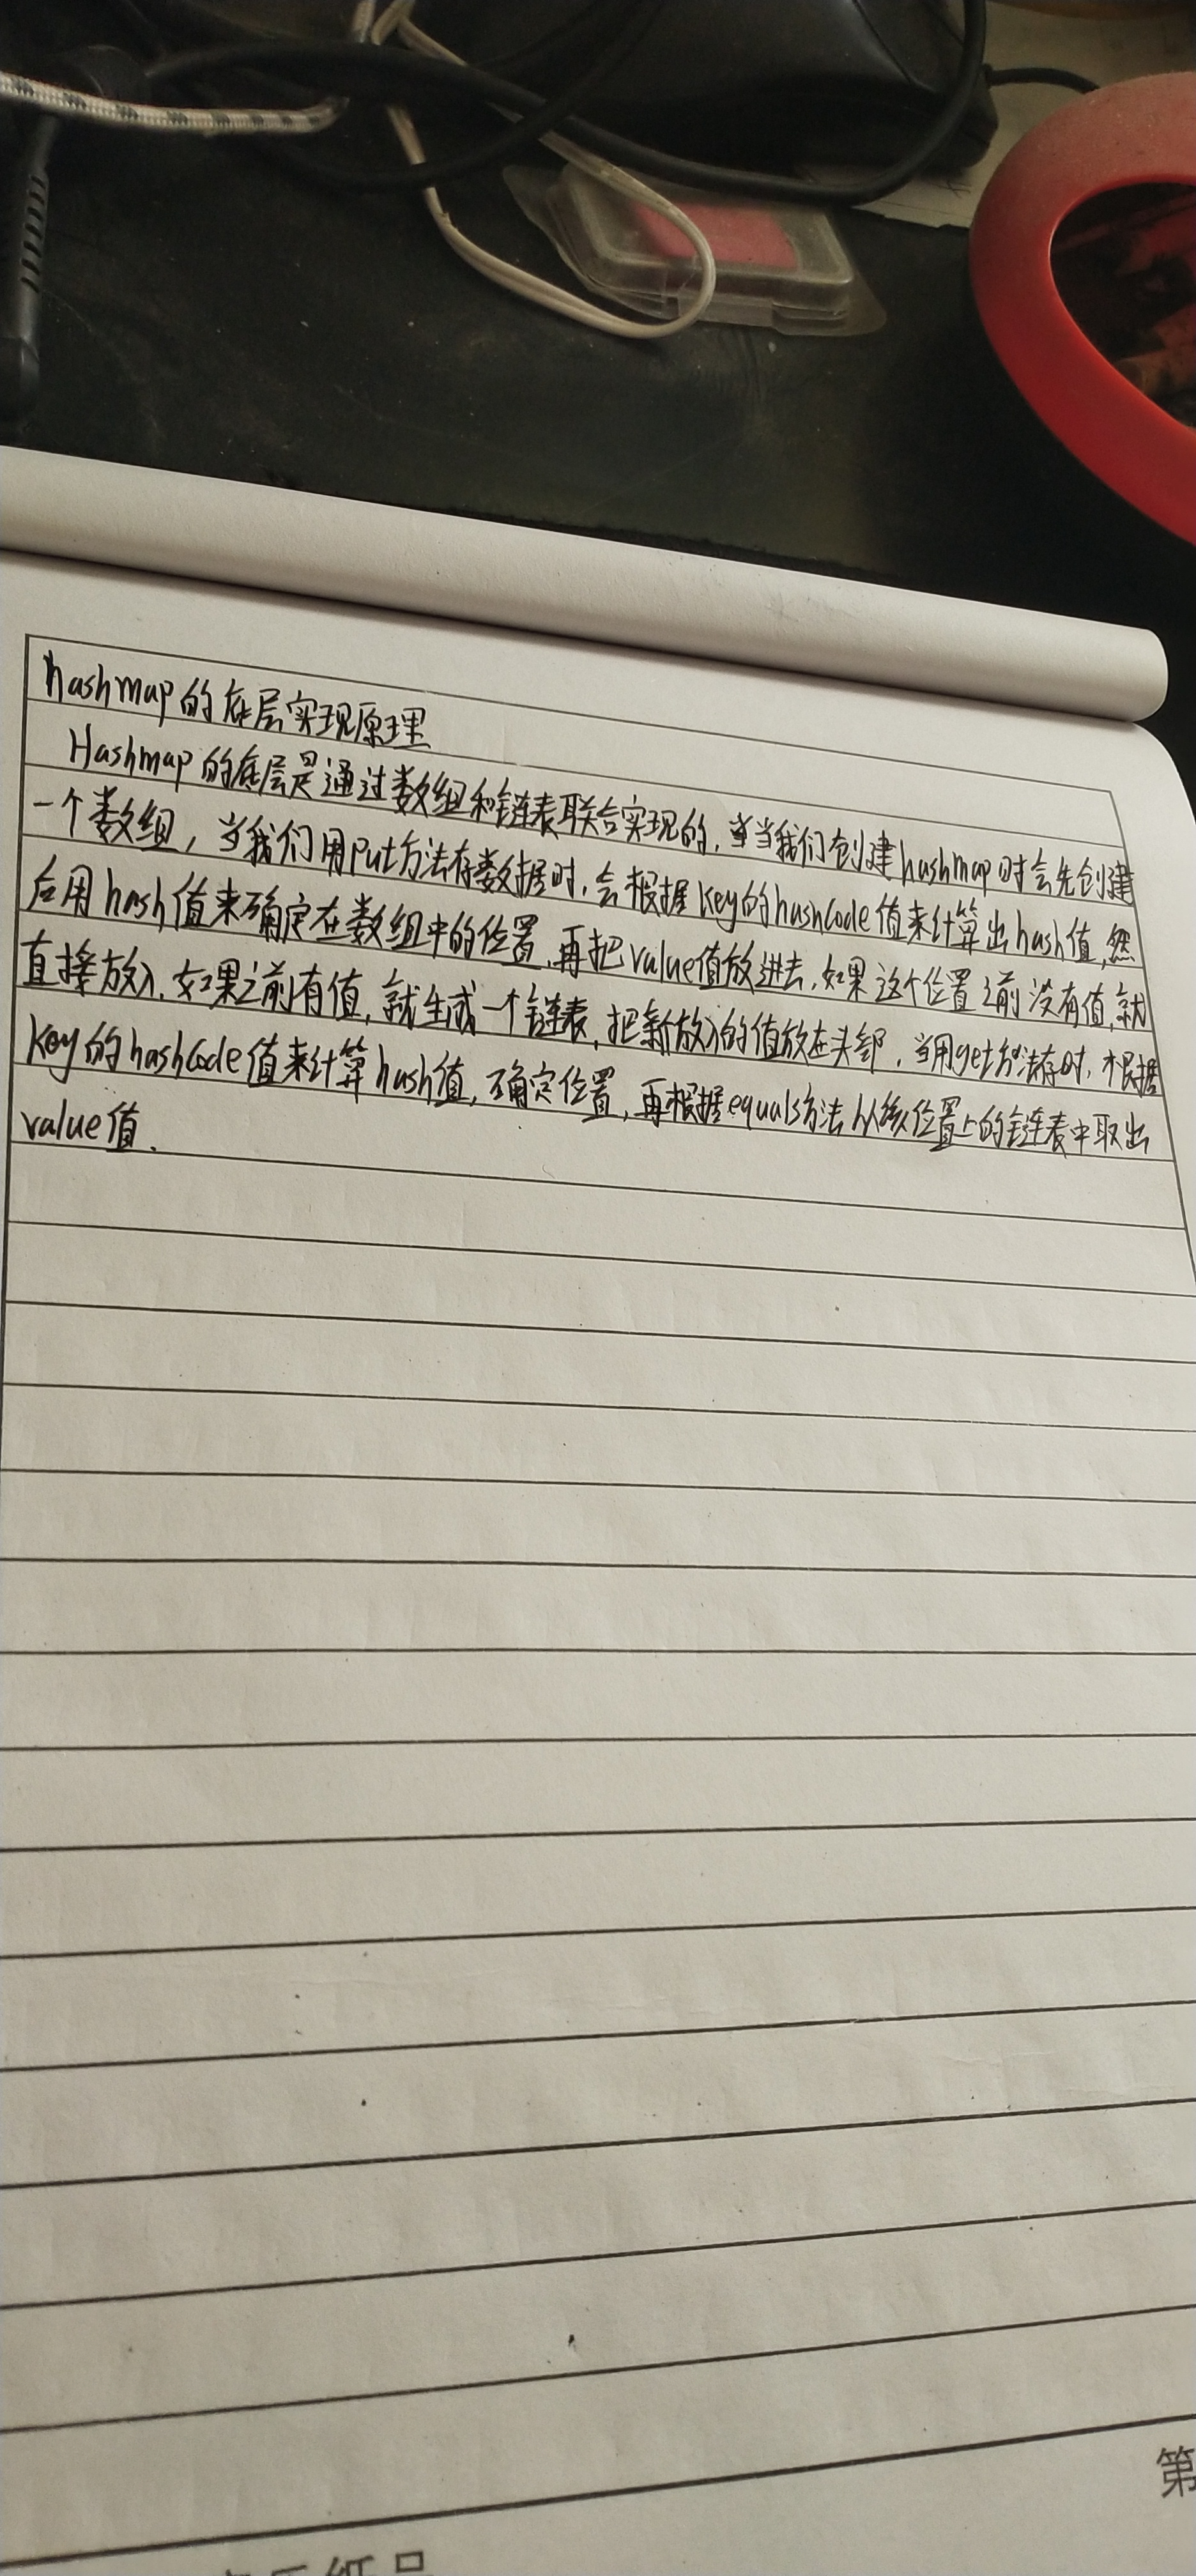 hashmap的底层实现原理
Hashmap的底层是通过数组和链表联合实现的,当当我们创建hashmap时会先创建
一个数组,当我们用put方法存数据时,会根据key的hashCode值来计算出hash值,然
后用hash值来确定在数组中的位置,再把value值放进去,如果这个位置之前没有值,就
直接放入,如果之前有值,就生成一个链表,把新放入的值放在头部,当用get方法存时,根据
key的hashCode值来计算hash值,确定位置,再根据equals方法从该位置上的链表中取出
value值.
第
纸品